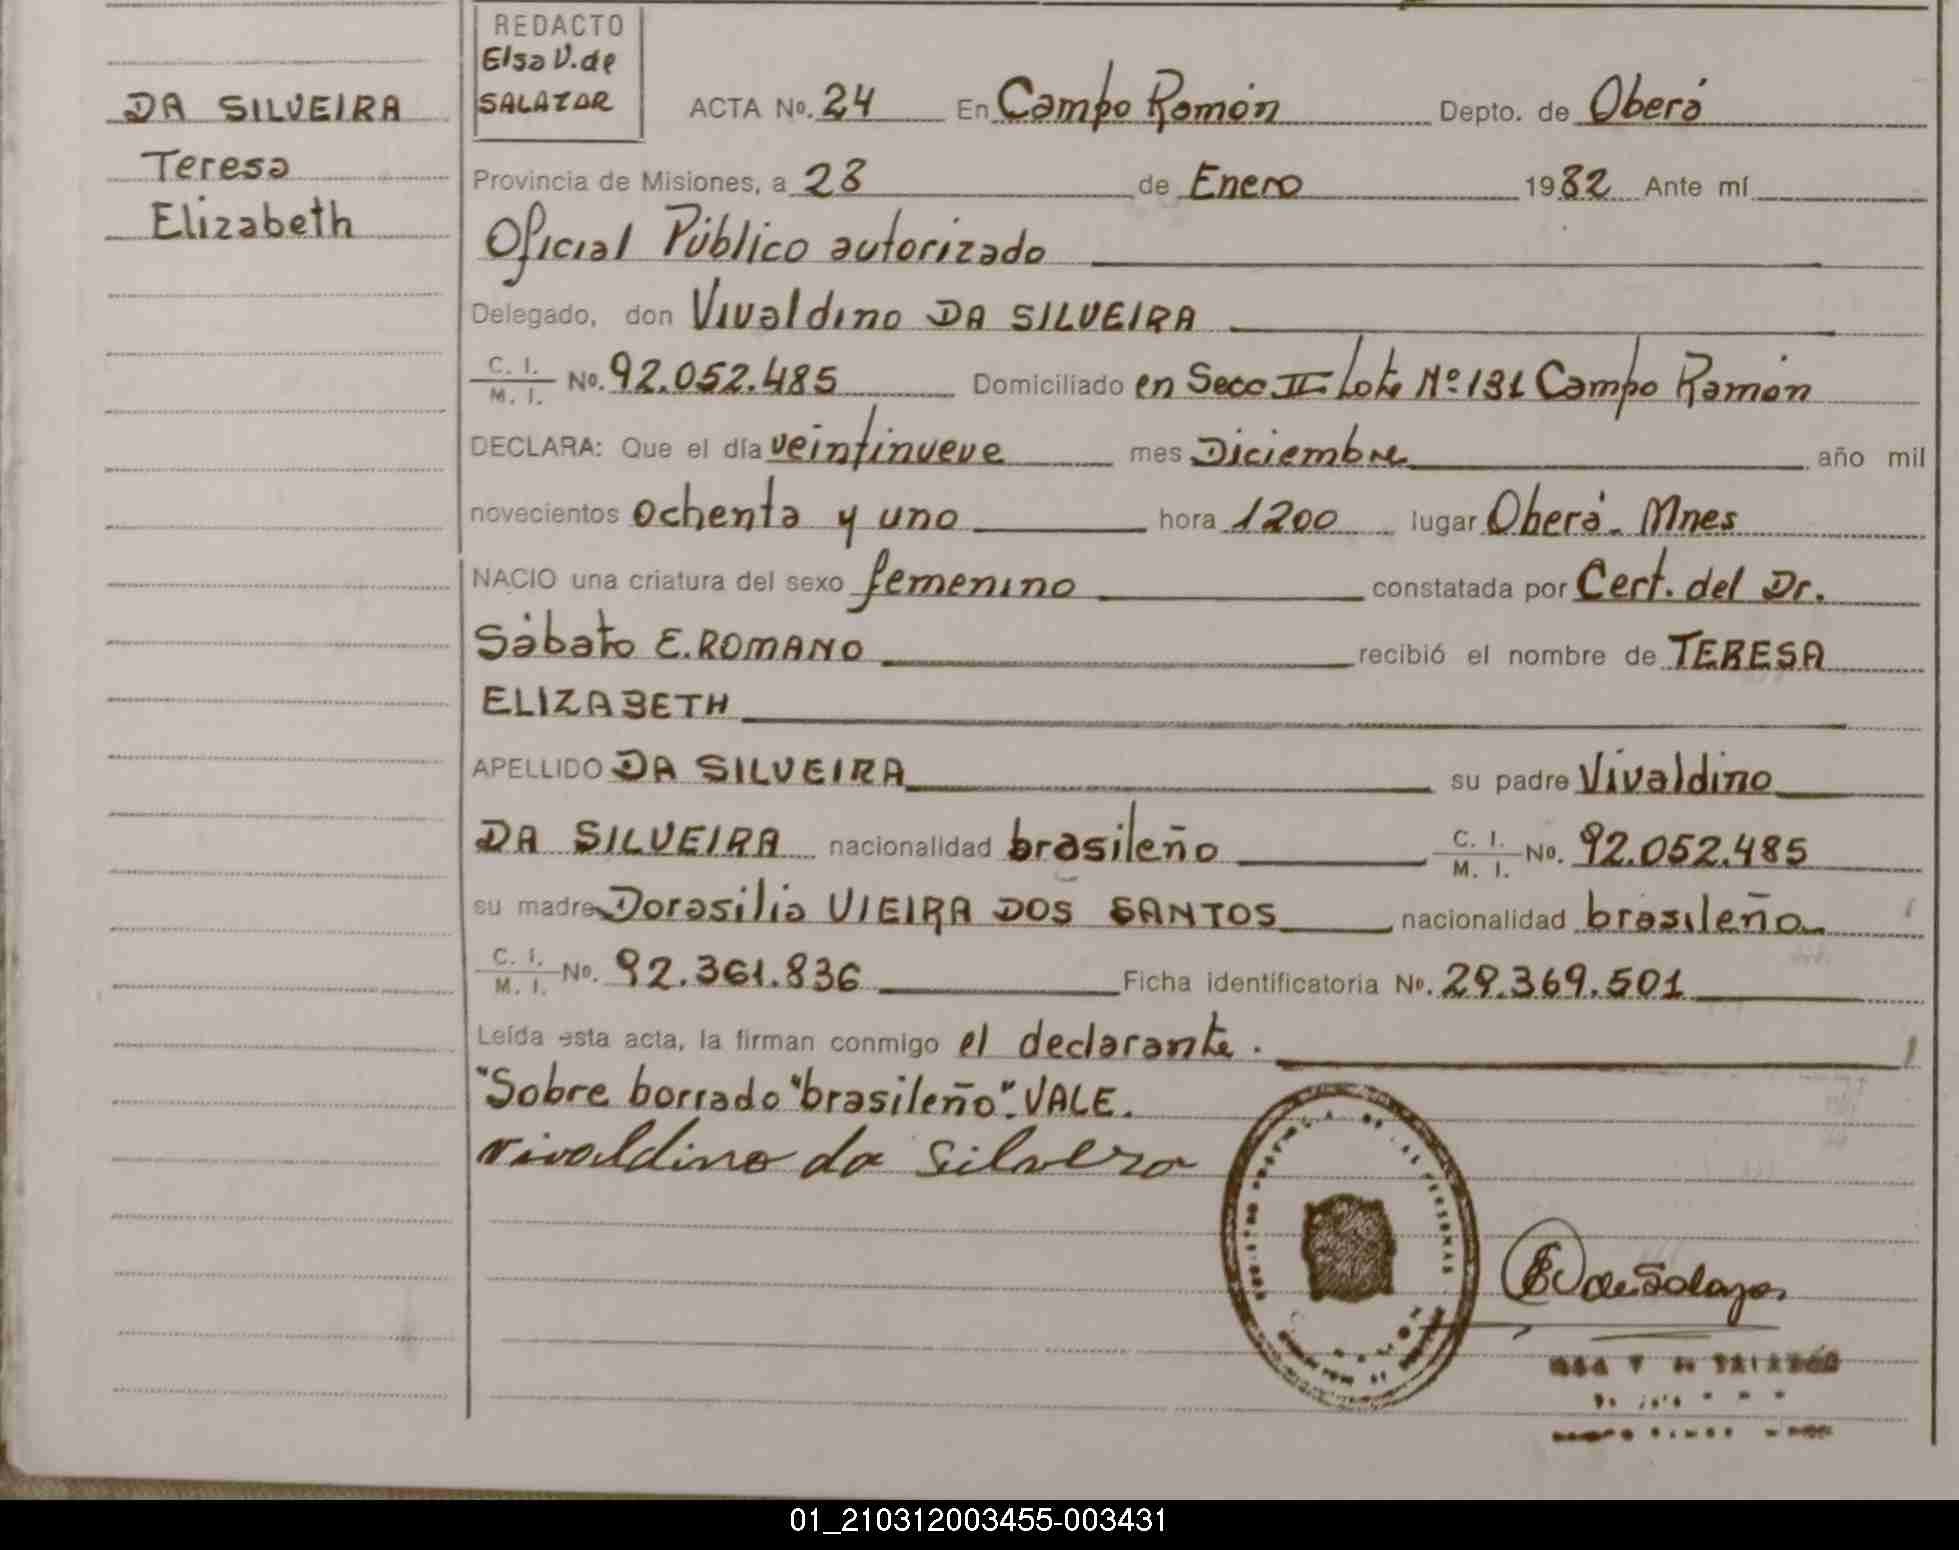 DA SILVEIRA
Teresa
Elizabeth
REDACTO
Elsa V. de
SALAZAR
ACTA No. 24 En Campo Ramón Depto. de Oberá
Provincia de Misiones, a 28 de Enero 1982 Ante mí
Oficial Público autorizado
Delegado, don Vivaldino DA SILVEIRA
C. I. / M. I. No. 92.052.485 Domiciliado en Secc II- Lote Nº 131 Campo Ramón
DECLARA: Que el día veintinueve mes Diciembre año mil
novecientos ochenta y uno hora 1200 lugar Oberá- Mnes
NACIO una criatura del sexo femenino constatada por Cert. del Dr.
Sábato E. ROMANO recibió el nombre de TERESA
ELIZABETH
APELLIDO DA SILVEIRA su padre Vivaldino
DA SILVEIRA nacionalidad brasileño C. I. / M. I. No. 92.052.485
su madre Dorasilia VIEIRA DOS SANTOS nacionalidad brasileña
C. I. / M. I. No. 92.361.836 Ficha identificatoria No. 29.369.501
Leída esta acta, la firman conmigo el declarante.
"Sobre borrado "brasileño". VALE.
vivaldino da silvera
E V de Salazar
01_210312003455-003431